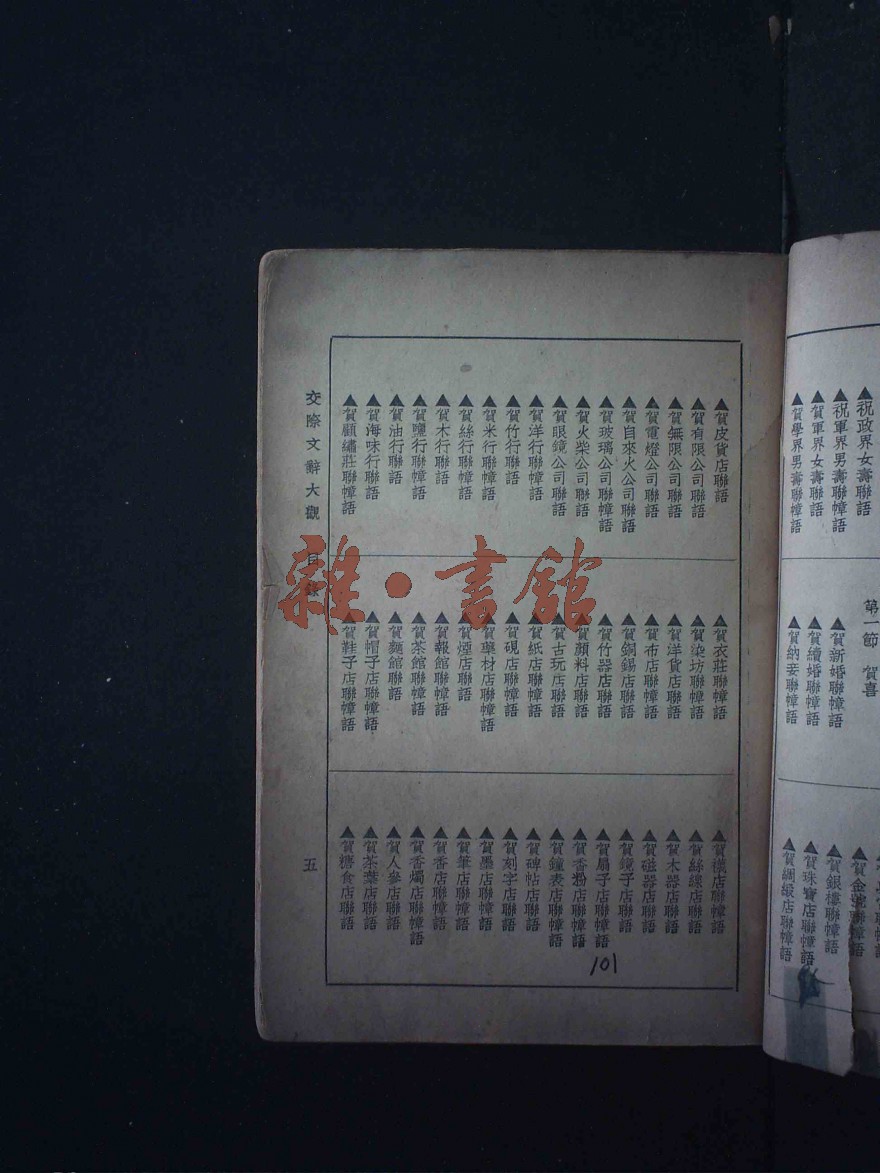 祝政界女壽聯語
祝軍界男壽聯幛語
賀軍界女壽聯語
賀學界男壽聯幛語
第一節 賀喜
賀新婚聯幛語
賀續婚聯幛語
賀納妾聯幛語
賀銀樓聯幛語
賀珠寶店聯幛語
賀綢緞店聯幛語
▲賀皮貨店聯語
▲賀有限公司聯語
▲賀無限公司聯語
▲賀電燈公司聯語
▲賀自來火公司聯語
▲賀玻璃公司聯幛語
▲賀火柴公司聯語
▲賀眼鏡公司聯語
▲賀洋行聯幛語
▲賀竹行聯幛語
▲賀米行聯幛語
▲賀絲行聯幛語
▲賀木行聯語
▲賀鹽行聯幛語
▲賀油行聯語
▲賀海味行聯語
▲賀顧繡莊聯幛語
▲賀衣莊聯幛語
▲賀染坊聯幛語
▲賀洋貨店聯語
▲賀布店聯幛語
▲賀銅錫店聯語
▲賀竹器店聯語
▲賀顏料店聯語
▲賀古玩店聯語
▲賀紙店聯幛語
▲賀硯店聯幛語
▲賀藥材店聯幛語
▲賀煙店聯語
▲賀報館聯幛語
▲賀茶館聯幛語
▲賀麵館聯語
▲賀帽子店聯幛語
▲賀鞋子店聯幛語
▲賀襪店聯幛語
▲賀絲線店聯語
▲賀木器店聯語
▲賀磁器店聯語
▲賀鏡子店聯語
▲賀扇子店聯幛語
▲賀香粉店聯幛語
▲賀鐘表店聯幛語
▲賀碑帖店聯語
▲賀刻字店聯語
▲賀墨店聯幛語
▲賀筆店聯幛語
▲賀香店聯幛語
▲賀香燭店聯幛語
▲賀人參店聯語
▲賀茶葉店聯語
▲賀糖食店聯語
交際文辭大觀 目錄
五
101
雜·書館